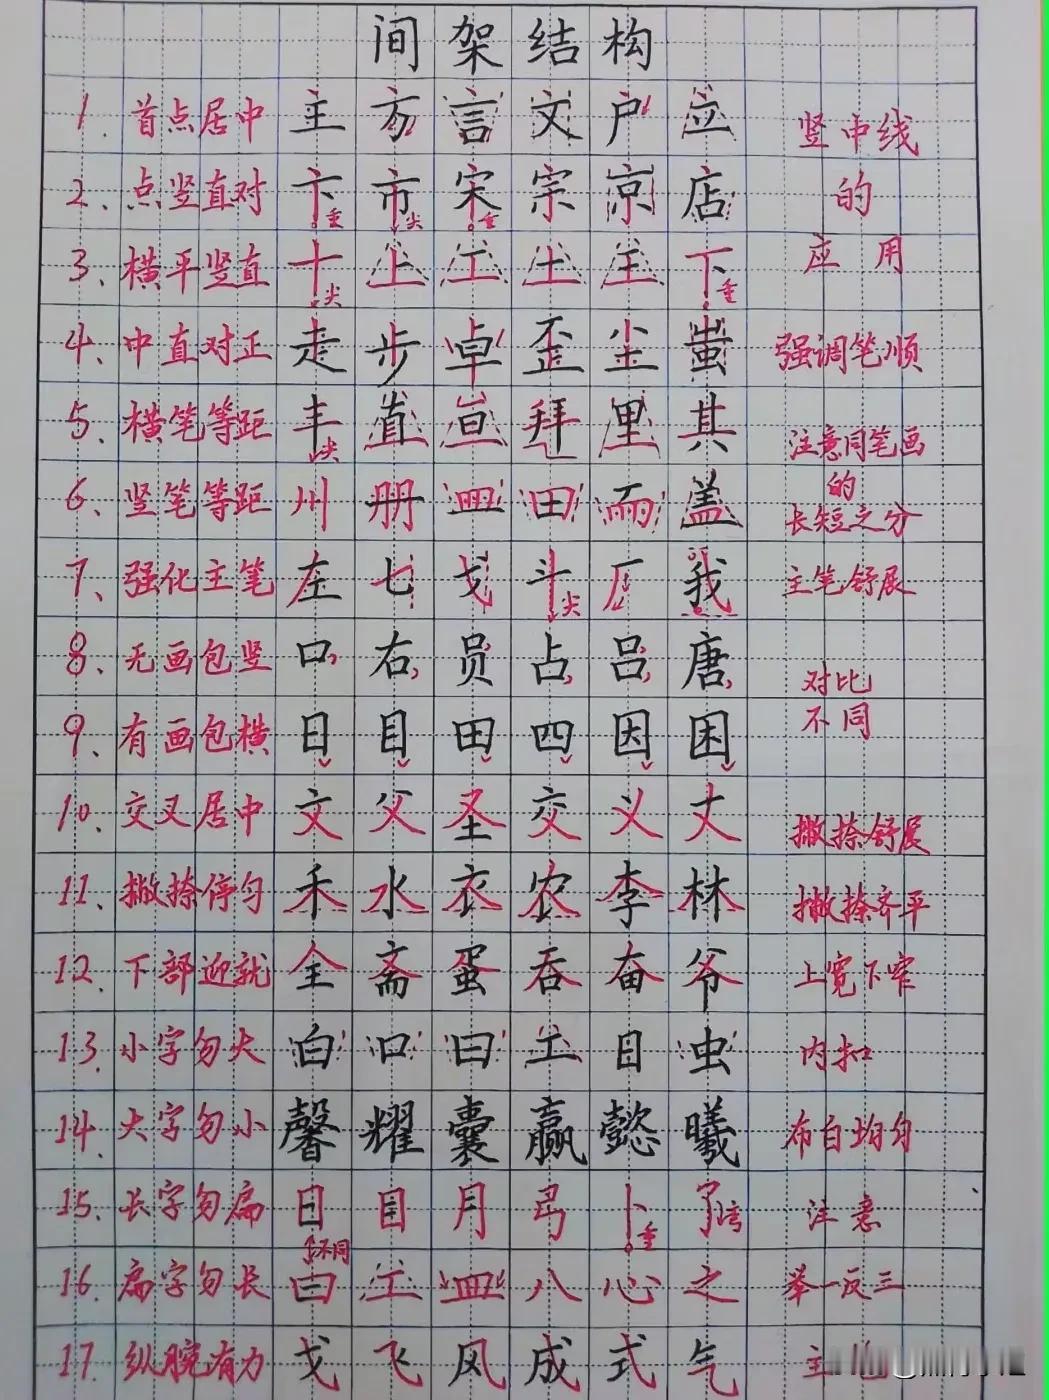 间架结构
1. 首点居中 主 方 言 文 户 应 竖中线
2. 点竖直对 卞垂 市尖 宋垂 宗 京 店 的
3. 横平竖直 十尖 上 工 土 王 下垂 应用
4. 中直对正 走 步 卓 歪 尘 蚩 强调笔顺
5. 横笔等距 丰尖 直 亘 拜 里 其 注意同笔画
6. 竖笔等距 州 册 皿 田 而 盖 的
长短之分
7. 强化主笔 左 七 戈 斗尖 厂 我 主笔舒展
8. 无画包竖 口 右 员 占 吕 唐 对比
9. 有画包横 日 目 田 四 因 困 不同
10. 交叉居中 文 父 圣 交 义 丈 撇捺舒展
11. 撇捺停匀 禾 水 衣 农 李 林 撇捺齐平
12. 下部迎就 全 斋 蛋 吞 奋 爷 上宽下窄
13. 小字勿大 白 口 曰 工 日 虫 内扣
14. 大字勿小 馨 耀 囊 赢 懿 曦 布白均匀
15. 长字勿扁 日 目 月 弓 卜垂 了 注意
不同
16. 扁字勿长 曰 工 皿 八 心 之 举一反三
17. 纵腕有力 戈 飞 风 成 式 气 主